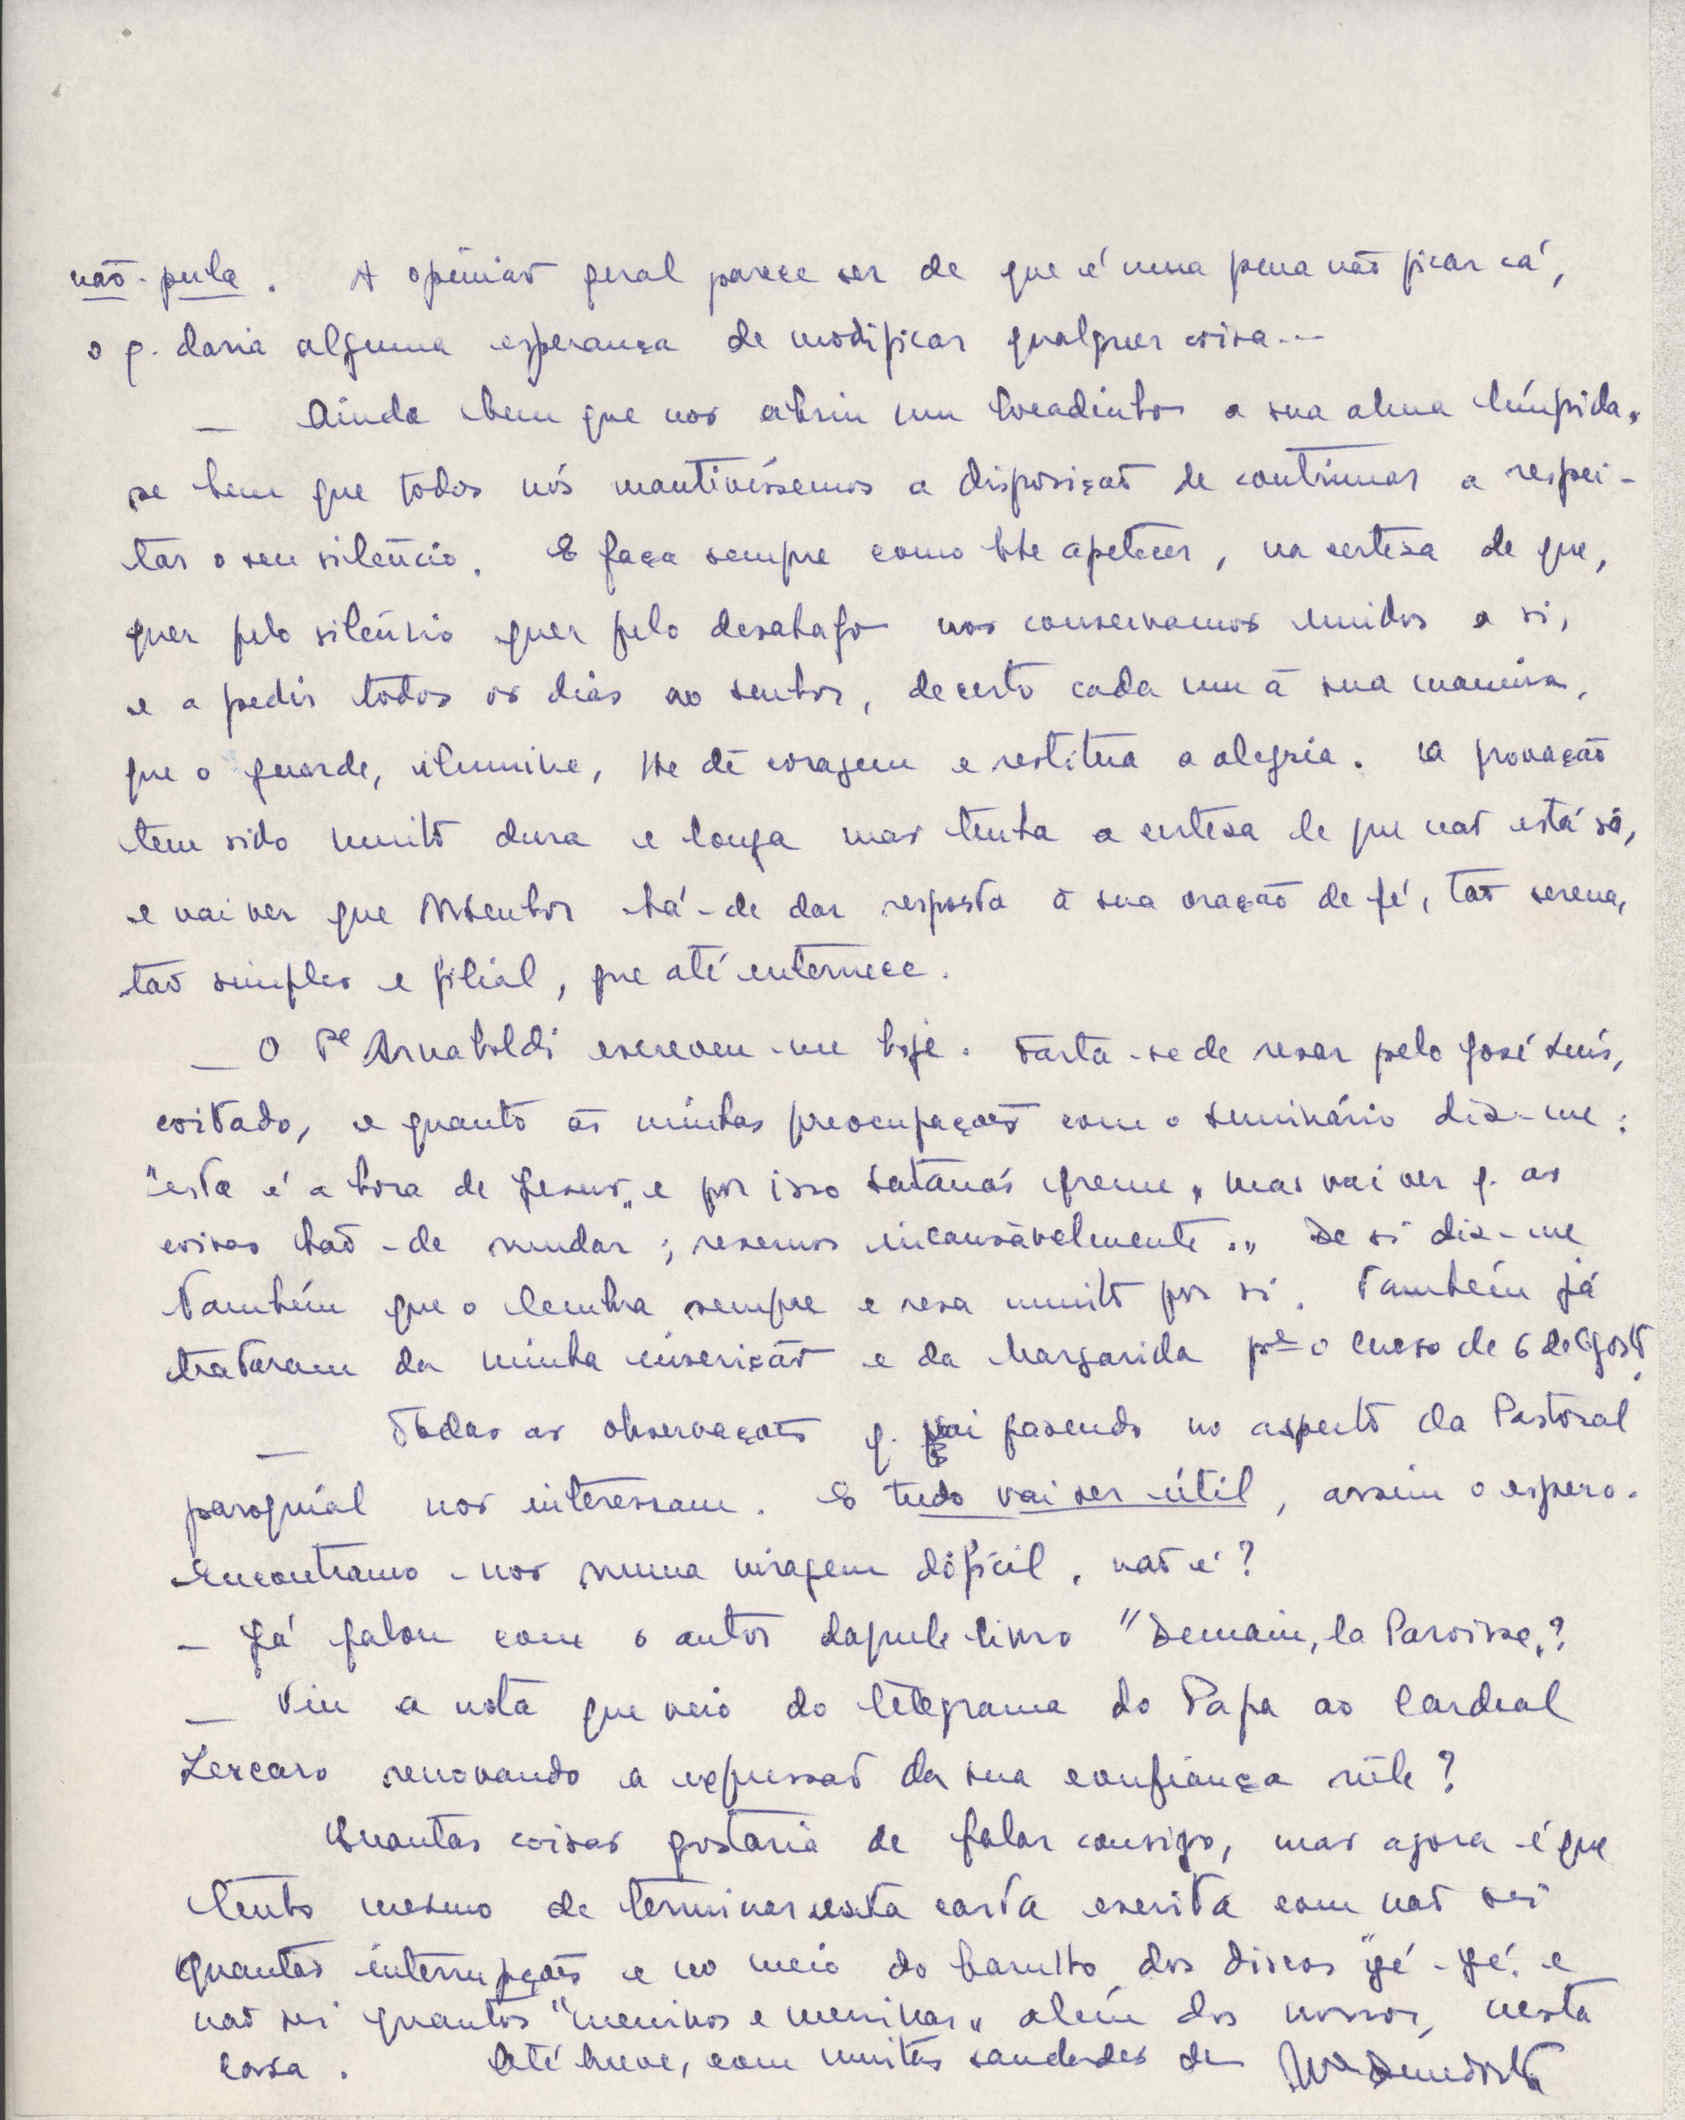 não-pula. A opinião geral parece ser de que é uma pena não ficar cá,
o q. daria alguma esperança de modificar qualquer coisa...
— Ainda bem que nos abriu um bocadinho a sua alma límpida,
se bem que todos nós mantivéssemos a disposição de continuar a respei-
tar o seu silêncio. E faça sempre como lhe apetecer, na certeza de que,
quer pelo silêncio quer pelo desabafo nos conservamos unidos a si,
e a pedir todos os dias ao Senhor, decerto cada um à sua maneira,
que o guarde, ilumine, lhe dê coragem e restitua a alegria. A provação
tem sido muito dura e longa mas tenha a certeza de que não está só,
e vai ver que NSenhor há-de dar resposta à sua oração de fé, tão serena,
tão simples e filial, que até enternece.
— O Pe Arnaboldi escreveu-me hoje. Farta-se de rezar pelo José Luís,
coitado, e quanto às minhas preocupações com o seminário diz-me:
"esta é a hora de Jesus" e por isso Satanás freme, mas vai ver q. as
coisas hão-de mudar; rezemos incansàvelmente." De si diz-me
também que o lembra sempre e reza muito por si. Também já
trataram da minha inscrição e da Margarida pª o curso de 6 de Agosto.
— Todas as observações q. vai fazendo no aspecto da Pastoral
paroquial nos interessam. E tudo vai ser útil, assim o espero.
Encontramo-nos numa viragem difícil, não é?
— Já falou com o autor daquele livro "Demain, la Paroisse"?
— Viu a nota que veio do telegrama do Papa ao Cardeal
Lercaro renovando a expressão da sua confiança nele?
Quantas coisas gostaria de falar consigo, mas agora é que
tenho mesmo de terminar esta carta escrita com não sei
quantas interrupções e no meio do barulho dos discos "yé-yé" e
não sei quantos "meninos e meninas" além dos nossos, nesta
casa. Até breve, com muitas saudades de